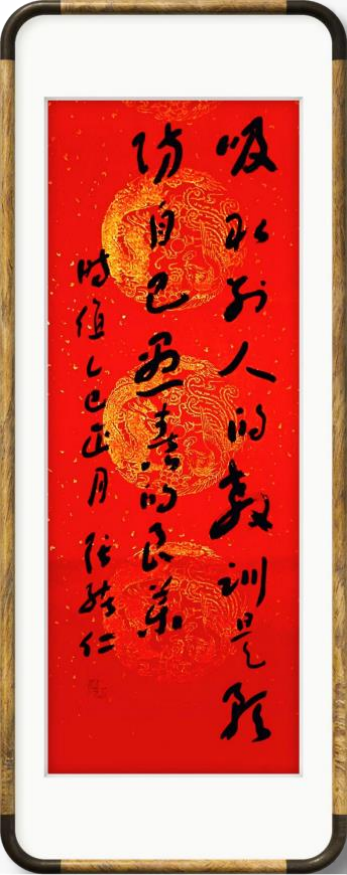 吸取别人的教训是预
防自己愚蠢的良药
时值乙巳正月 张 仁